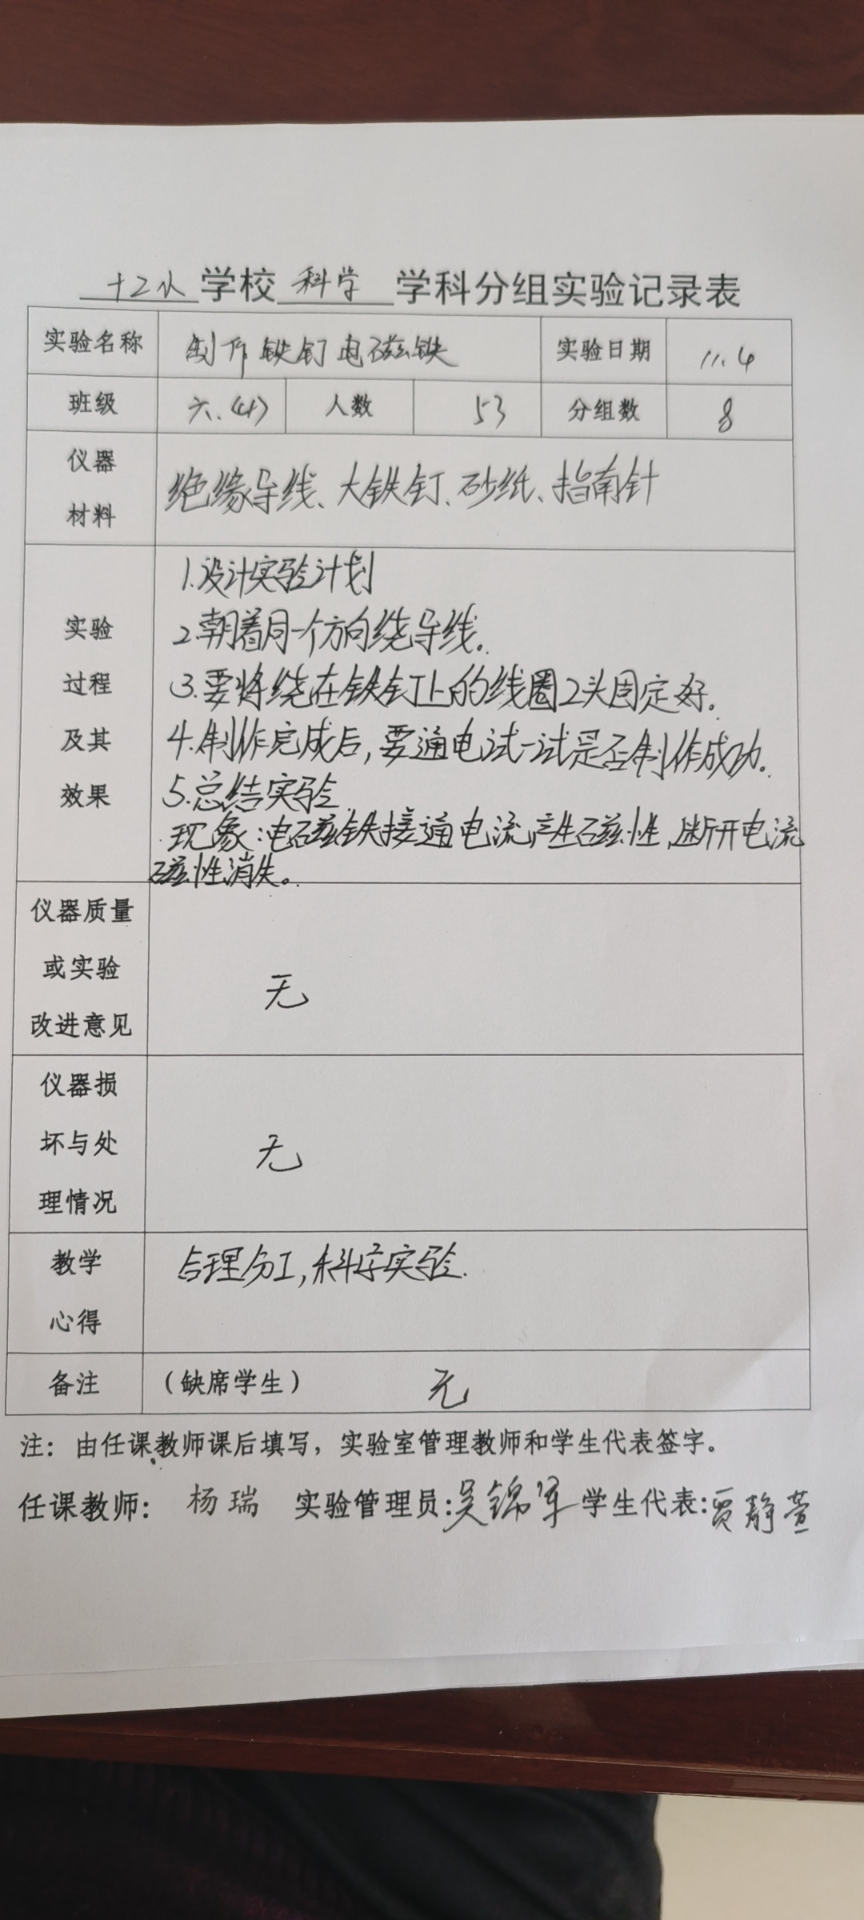 十二小学校 科学 学科分组实验记录表
实验名称 制作铁钉电磁铁 实验日期 11.4
班级 六.(4) 人数 53 分组数 8
仪器
材料
绝缘导线、大铁钉、砂纸、指南针
实验
过程
及其
效果
1.设计实验计划
2.朝着同一个方向绕导线。
3.要将绕在铁钉上的线圈2头固定好.
4.制作完成后,要通电试一试是否制作成功.
5.总结实验
现象:电磁铁接通电流产生磁性,断开电流
磁性消失。
仪器质量
或实验
改进意见
无
仪器损
坏与处
理情况
无
教学
心得
合理分工,科学实验.
备注 (缺席学生) 无
注：由任课教师课后填写，实验室管理教师和学生代表签字。
任课教师： 杨瑞 实验管理员:吴锦军 学生代表:贾静萱